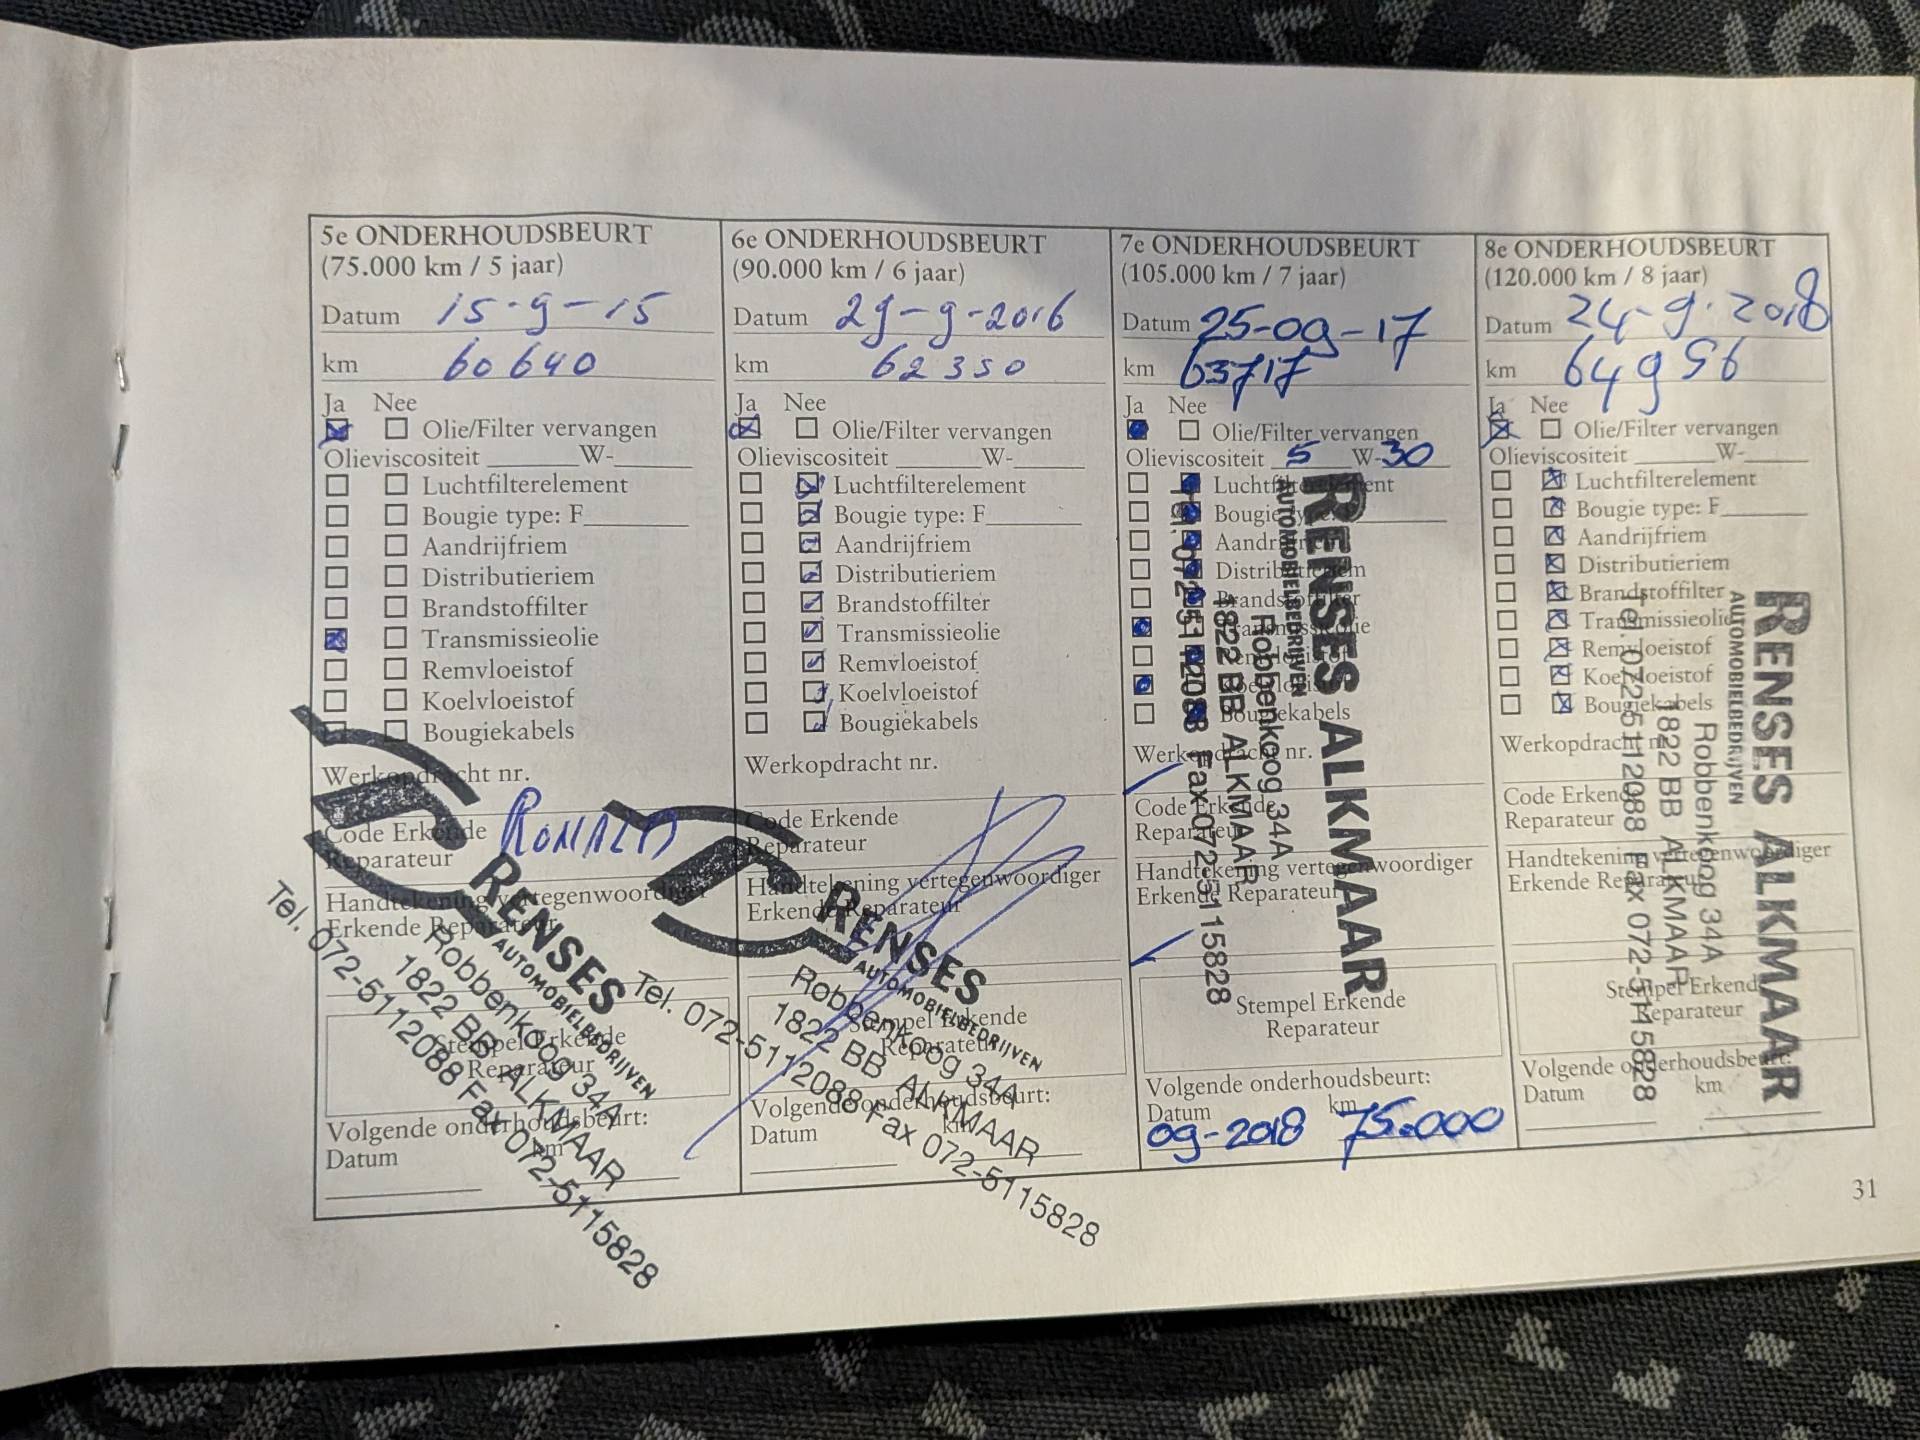 5e ONDERHOUDSBEURT
(75.000 km / 5 jaar)
Datum 15-9-15
km 60640
Ja Nee
Olie/Filter vervangen
Olieviscositeit W-
Luchtfilterelement
Bougie type: F
Aandrijfriem
Distributieriem
Brandstoffilter
Transmissieolie
Remvloeistof
Koelvloeistof
Bougiekabels
Werkopdracht nr.
Code Erkende
Reparateur
RONALD
Handtekening vertegenwoordiger
Erkende Reparateur
Stempel Erkende
Reparateur
Volgende onderhoudsbeurt:
Datum km
RENSES
AUTOMOBIELBEDRIJVEN
Robbenkoog 34A
1822 BB ALKMAAR
Tel. 072-5112088 Fax 072-5115828
6e ONDERHOUDSBEURT
(90.000 km / 6 jaar)
Datum 29-9-2016
km 62350
Ja Nee
Olie/Filter vervangen
Olieviscositeit W-
Luchtfilterelement
Bougie type: F
Aandrijfriem
Distributieriem
Brandstoffilter
Transmissieolie
Remvloeistof
Koelvloeistof
Bougiekabels
Werkopdracht nr.
Code Erkende
Reparateur
Handtekening vertegenwoordiger
Erkende Reparateur
Stempel Erkende
Reparateur
Volgende onderhoudsbeurt:
Datum km
RENSES
AUTOMOBIELBEDRIJVEN
Robbenkoog 34A
1822 BB ALKMAAR
Tel. 072-5112088 Fax 072-5115828
7e ONDERHOUDSBEURT
(105.000 km / 7 jaar)
Datum 25-09-17
km 63717
Ja Nee
Olie/Filter vervangen
Olieviscositeit 5 W-30
Luchtfilterelement
Bougie type: F
Aandrijfriem
Distributieriem
Brandstoffilter
Transmissieolie
Remvloeistof
Koelvloeistof
Bougiekabels
Werkopdracht nr.
Code Erkende
Reparateur
Handtekening vertegenwoordiger
Erkende Reparateur
Stempel Erkende
Reparateur
Volgende onderhoudsbeurt:
Datum km
09-2018 75.000
RENSES ALKMAAR
AUTOMOBIELBEDRIJVEN
Robbenkoog 34A
1822 BB ALKMAAR
Tel. 072-5112088 Fax 072-5115828
8e ONDERHOUDSBEURT
(120.000 km / 8 jaar)
Datum 24-9-2018
km 64996
Ja Nee
Olie/Filter vervangen
Olieviscositeit W-
Luchtfilterelement
Bougie type: F
Aandrijfriem
Distributieriem
Brandstoffilter
Transmissieolie
Remvloeistof
Koelvloeistof
Bougiekabels
Werkopdracht nr.
Code Erkende
Reparateur
Handtekening vertegenwoordiger
Erkende Reparateur
Stempel Erkende
Reparateur
Volgende onderhoudsbeurt:
Datum km
RENSES ALKMAAR
AUTOMOBIELBEDRIJVEN
Robbenkoog 34A
1822 BB ALKMAAR
Tel. 072-5112088 Fax 072-5115828
31